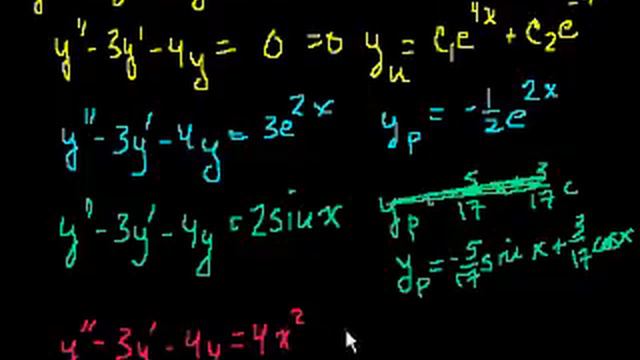 y'' - 3y' - 4y = 0 => y_h = C₁e^{4x} + C₂e
y'' - 3y' - 4y = 3e^{2x} y_p = -1/2 e^{2x}
y'' - 3y' - 4y = 2sin x
y_p = -5/17 sin x + 3/17 cos x
y'' - 3y' - 4y = 4x²